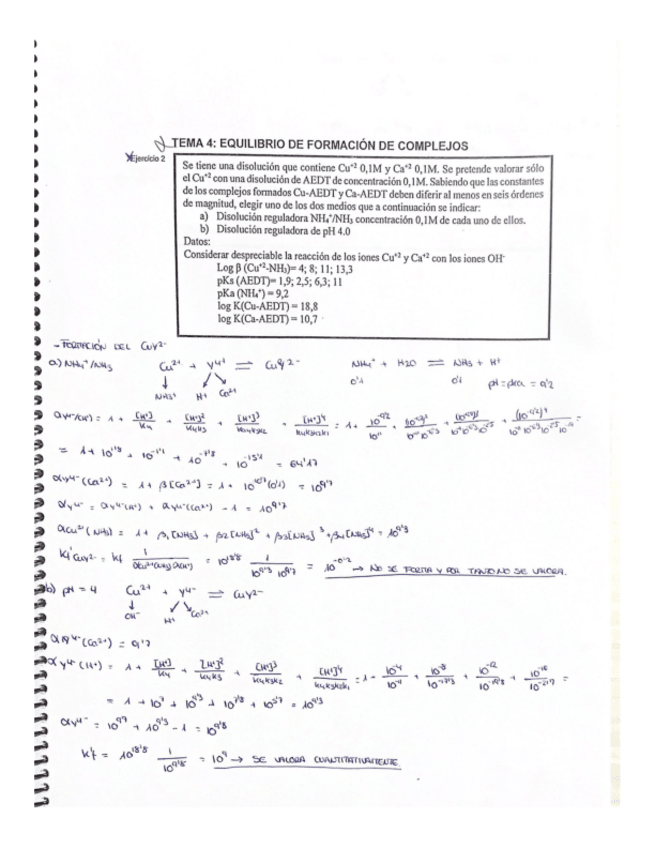 TEMA 4: EQUILIBRIO DE FORMACIÓN DE COMPLEJOS
Ejercicio 2
Se tiene una disolución que contiene Cu⁺² 0,1M y Ca⁺² 0,1M. Se pretende valorar sólo
el Cu⁺² con una disolución de AEDT de concentración 0,1M. Sabiendo que las constantes
de los complejos formados Cu-AEDT y Ca-AEDT deben diferir al menos en seis órdenes
de magnitud, elegir uno de los dos medios que a continuación se indicar:
a) Disolución reguladora NH₄⁺/NH₃ concentración 0,1M de cada uno de ellos.
b) Disolución reguladora de pH 4.0
Datos:
Considerar despreciable la reacción de los iones Cu⁺² y Ca⁺² con los iones OH⁻
Log β (Cu⁺²-NH₃)= 4; 8; 11; 13,3
pKs (AEDT)= 1,9; 2,5; 6,3; 11
pKa (NH₄⁺) = 9,2
log K(Cu-AEDT) = 18,8
log K(Ca-AEDT) = 10,7
- FORMACIÓN DEL CuY²⁻
a) NH₄⁺/NH₃ Cu²⁺ + Y⁴⁻ ⇌ CuY²⁻ NH₄⁺ + H₂O ⇌ NH₃ + H⁺
NH₃ H⁺ Ca²⁺ 0'1 0'1 pH = pka = 9'2
αY⁴⁻(H⁺) = 1 + [H⁺]/K₄ + [H⁺]²/K₄K₃ + [H⁺]³/K₄K₃K₂ + [H⁺]⁴/K₄K₃K₂K₁ = 1 +
= 1 + 10¹'⁸ + 10⁻¹'¹ + 10⁻⁷'⁸ + 10⁻¹⁵'¹ = 64'17
αY⁴⁻(Ca²⁺) = 1 + β[Ca²⁺] = 1 + 10¹⁰'⁷(0'1) = 10⁹'⁷
αY⁴⁻ = αY⁴⁻(H⁺) + αY⁴⁻(Ca²⁺) - 1 = 10⁹'⁷
αCu²⁺(NH₃) = 1 + β₁[NH₃] + β₂[NH₃]² + β₃[NH₃]³ + β₄[NH₃]⁴ = 10⁹'³
Kf'CuY²⁻ = Kf = 10¹⁸'⁸ 1/10⁹'³ 10⁹'⁷ = 10⁻⁰'² → NO SE FORMA Y POR TANTO NO SE VALORA.
b) pH = 4 Cu²⁺ + Y⁴⁻ ⇌ CuY²⁻
OH⁻ H⁺ Ca²⁺
αY⁴⁻(Ca²⁺) = 9'7
αY⁴⁻(H⁺) = 1 + [H⁺]/K₄ + [H⁺]²/K₄K₃ + [H⁺]³/K₄K₃K₂ + [H⁺]⁴/K₄K₃K₂K₁ = 1 + 10⁻⁴/10⁻¹¹ + 10⁻⁸/10⁻¹⁷'³ + 10⁻¹²/10⁻¹⁹'⁸ + 10⁻¹⁶/10⁻²¹'⁷ =
= 1 + 10⁷ + 10⁹'³ + 10⁷'⁸ + 10⁵'⁷ = 10⁹'³
αY⁴⁻ = 10⁹'⁷ + 10⁹'³ - 1 = 10⁹'⁸
K'f = 10¹⁸'⁸ 1/10⁹'⁸ = 10⁹ → SE VALORA CUANTITATIVAMENTE.